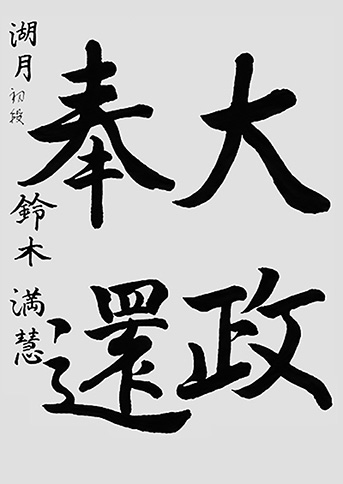 大政
奉還
湖月 初段 鈴木満慧